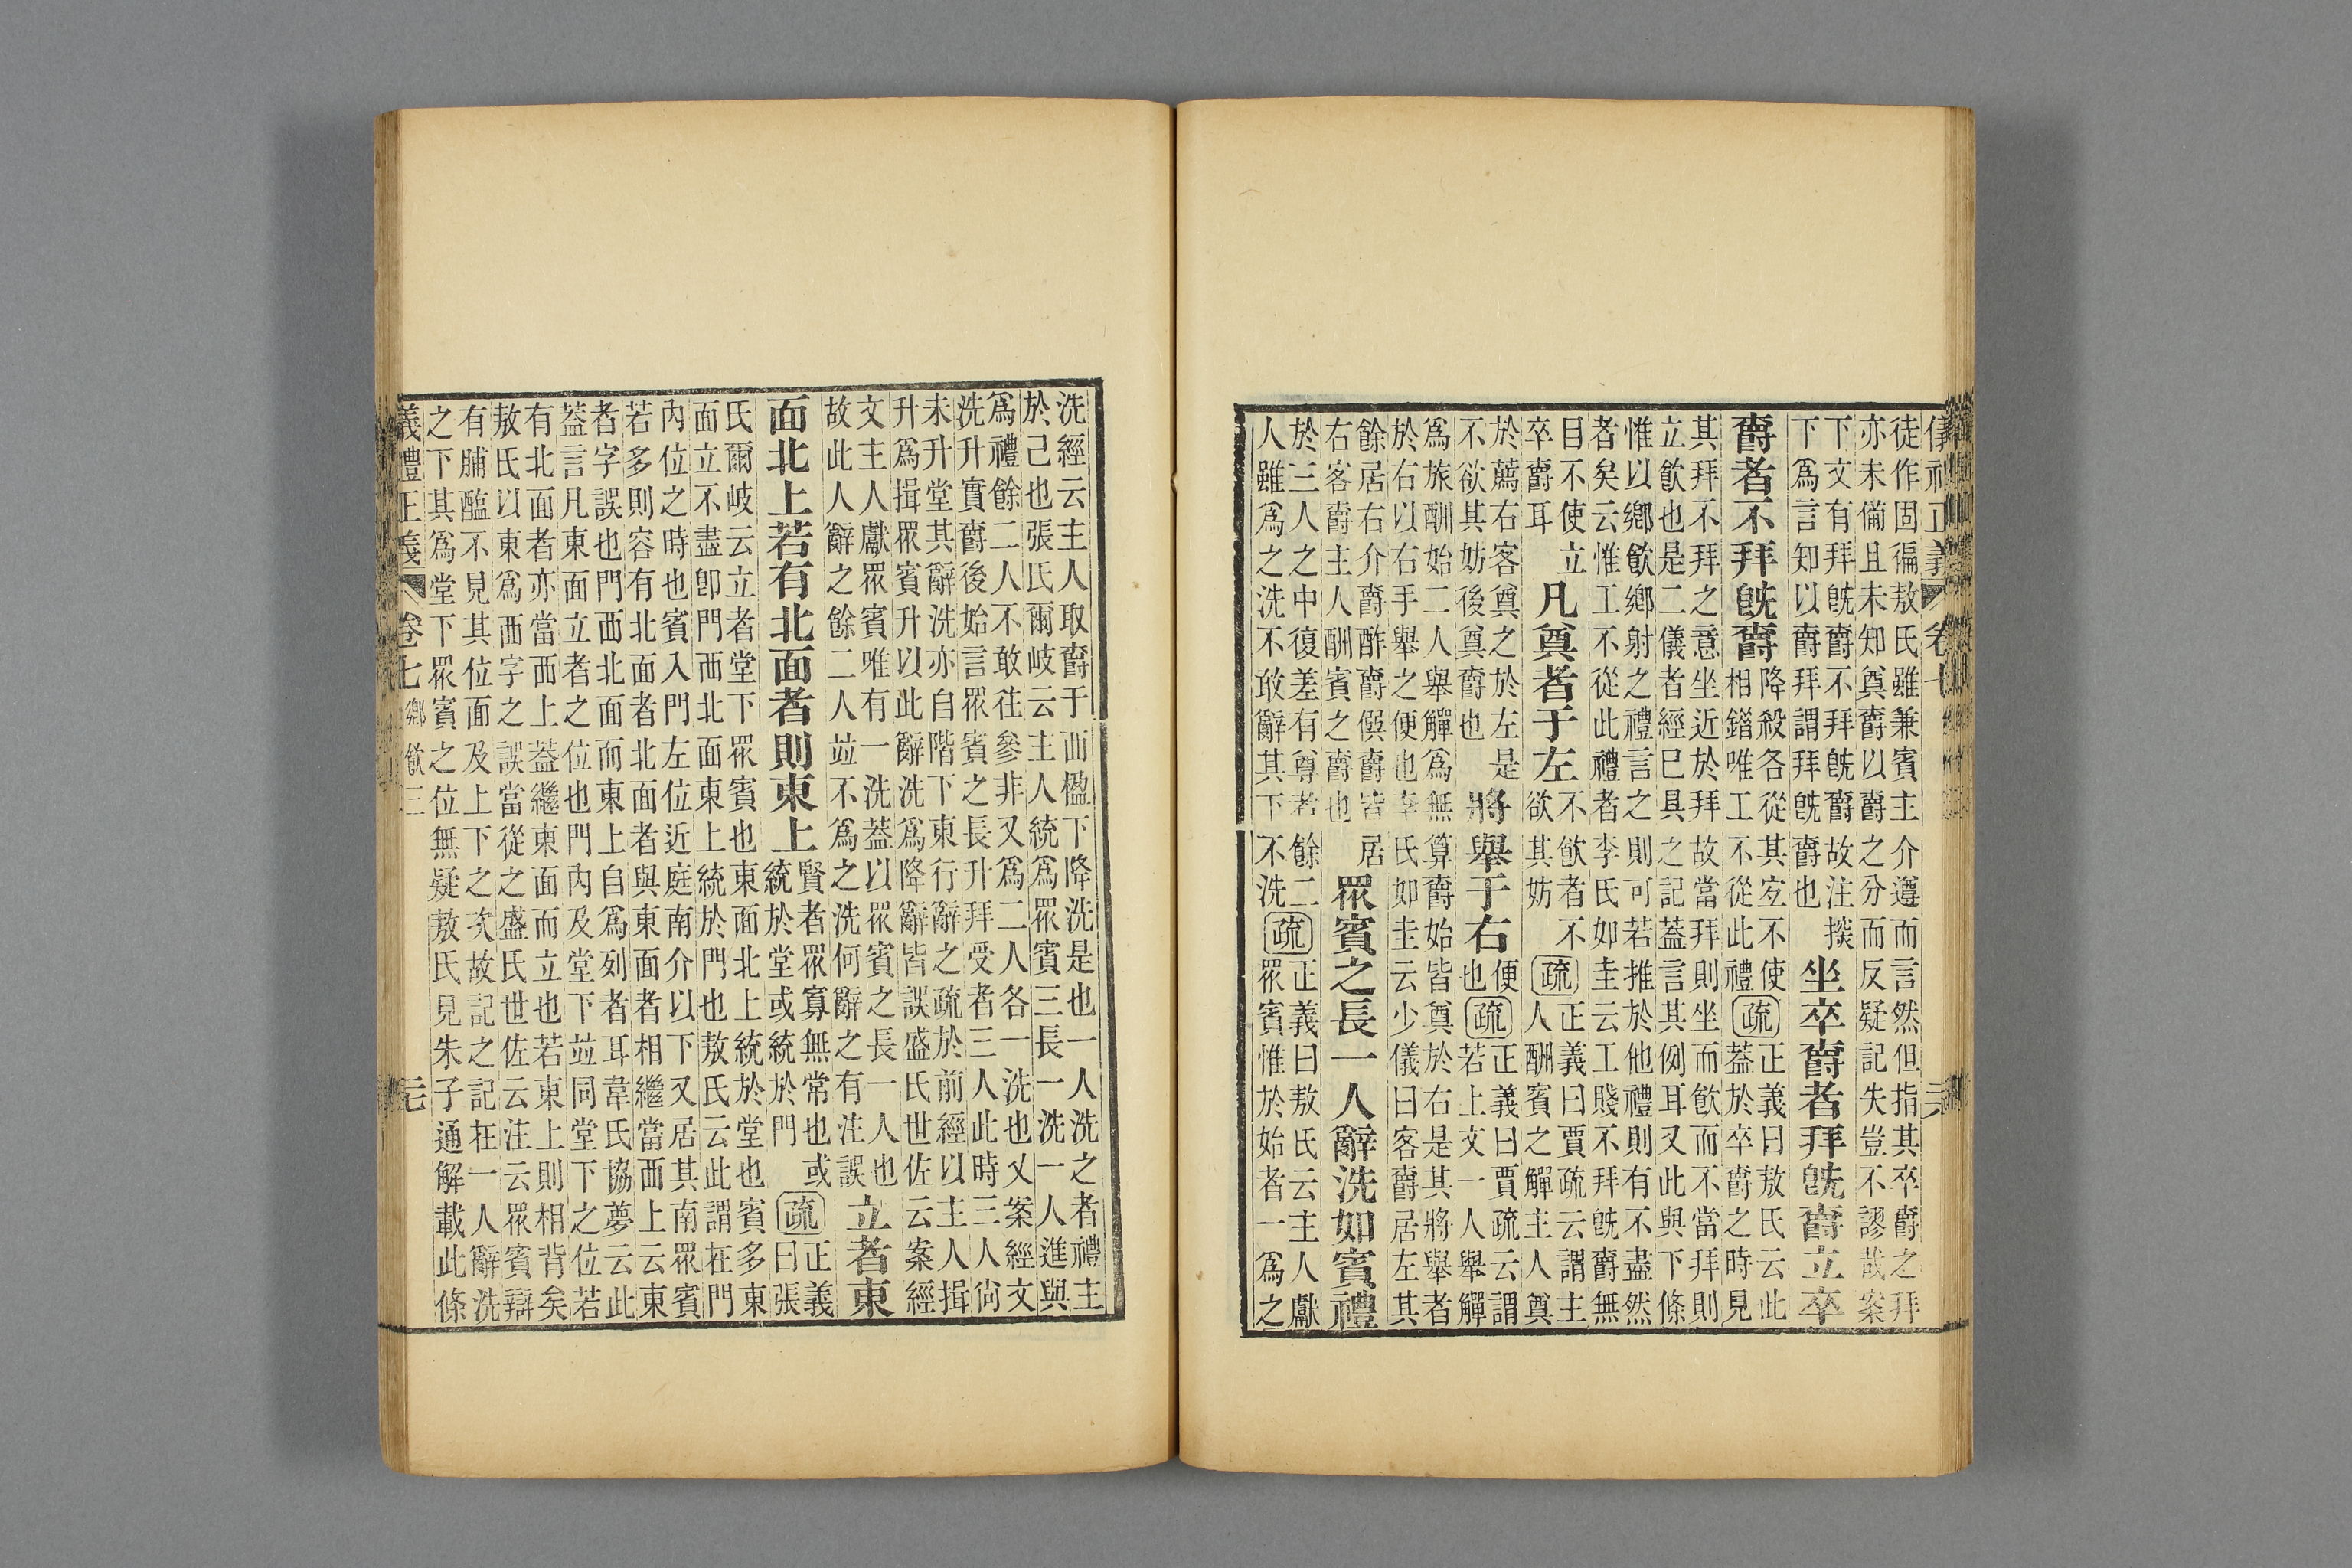 儀禮正義
徒作固徧敖氏雖兼賓主介遵而言然但指其卒爵之拜
亦未備且未知奠爵以爵之分而反疑記失豈不謬哉案
下文有拜旣爵不拜旣爵故注㨿
下爲言知以爵拜謂拜旣爵也
坐卒爵者拜旣爵立卒
爵者不拜旣爵
降殺各從其宐不使
相錯唯工不從此禮
疏
正義曰敖氏云此
蓋於卒爵之時見
其拜不拜之意坐近於拜故當拜則坐而飮而不當拜則
立飮也是二儀者經已具之記蓋言其例耳又此與下條
惟以鄉飮鄉射之禮言之則可若推於他禮則有不盡然
者矣云惟工不從此禮者李氏如圭云工賤不拜旣爵無
目不使立
卒爵耳
凡奠者于左
不飮者不
欲其妨
疏
正義曰賈疏云謂主
人酬賓之觶主人奠
於薦右客奠之於左是
不欲其妨後奠爵也
將舉于右
便
也
疏
正義曰賈疏云謂
若上文一人舉觶
爲旅酬始二人舉觶爲無算爵始皆奠於右是其將舉者
於右以右手舉之便也李氏如圭云少儀曰客爵居左其
餘居右介爵酢爵僎爵皆居
右客爵主人酬賓之爵也
眾賓之長一人辭洗如賓禮
於三人之中復差有尊者餘二
人雖爲之洗不敢辭其下不洗
疏
正義曰敖氏云主人獻
眾賓惟於始者一爲之
洗經云主人取爵于西楹下降洗是也一人洗之者禮主
於己也張氏爾岐云主人統爲眾賓三長一洗一人進與
爲禮餘二人不敢往參非又爲二人各一洗也又案經文
洗升實爵後始言眾賓之長升拜受者三人此時三人尚
未升堂其辭洗亦自階下東行辭之疏於前經以主人揖
升爲揖眾賓升以此辭洗爲降辭皆誤盛氏世佐云案經
文主人獻眾賓唯有一洗蓋以眾賓之長一人也
故此人辭之餘二人竝不爲之洗何辭之有注誤
立者東
面北上若有北面者則東上
賢者眾寡無常也或
統於堂或統於門
疏
正義
曰張
氏爾岐云立者堂下眾賓也東面北上統於堂也賓多東
面立不盡卽門西北面東上統於門也敖氏云此謂在門
內位之時也賓入門左位近庭南介以下又居其南眾賓
若多則容有北面者北面者與東面者相繼當西上云東
者字誤也門西北面而東上自爲列者耳韋氏協夢云此
蓋言凡東面立者之位也門內及堂下竝同堂下之位若
有北面者亦當西上蓋繼東面而立也若東上則相背矣
敖氏以東爲西字之誤當從之盛氏世佐云注云眾賓辯
有脯醢不見其位面及上下之次故記之記在一人辭洗
之下其爲堂下眾賓之位無疑敖氏見朱子通解載此條
儀禮正義 卷七 鄉飮三